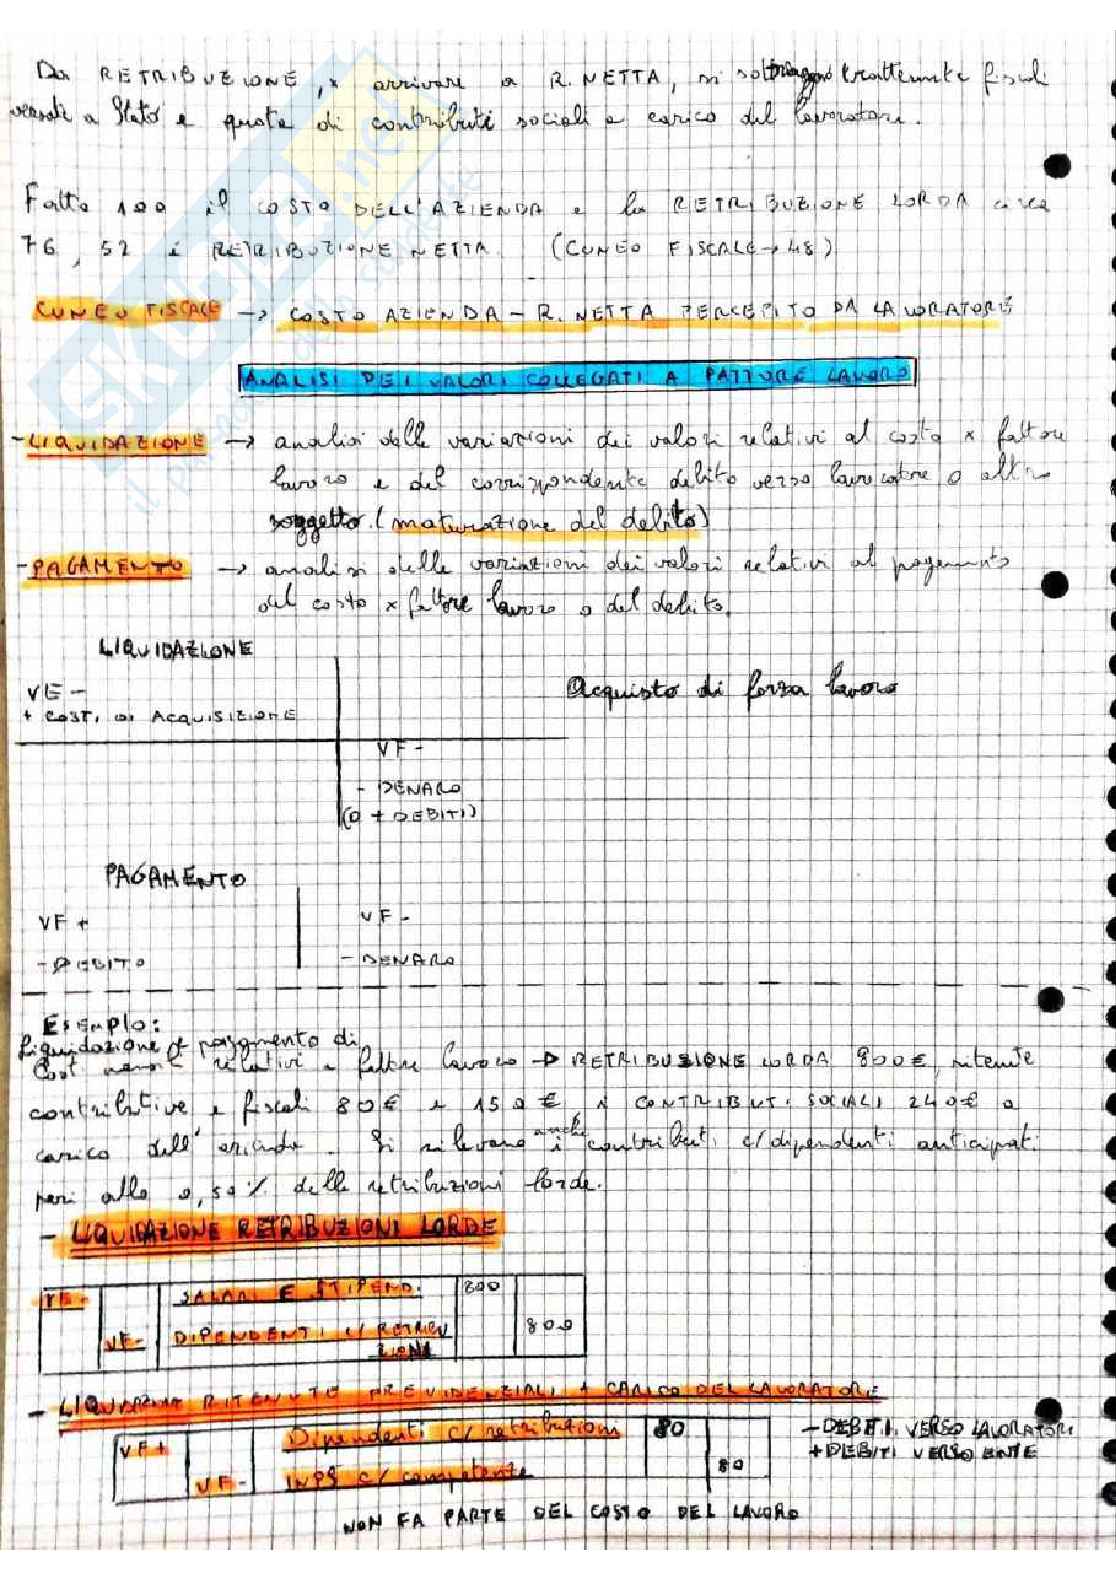 Da RETRIBUZIONE, x arrivare a R. NETTA, si sottraggono trattenute fiscali
versate a Stato e quota di contributi sociali a carico del lavoratore.
Fatto 100 il COSTO DELL'AZIENDA e la RETRIBUZIONE LORDA circa
76, 52 è RETRIBUZIONE NETTA. (CUNEO FISCALE → 48)
CUNEO FISCALE → COSTO AZIENDA - R. NETTA PERCEPITO DA LAVORATORE
ANALISI DEI VALORI COLLEGATI A FATTORE LAVORO
- LIQUIDAZIONE → analisi delle variazioni dei valori relativi al costo x fattore
lavoro e del corrispondente debito verso lavoratore o altro
soggetto. (maturazione del debito)
- PAGAMENTO → analisi delle variazioni dei valori relativi al pagamento
del costo x fattore lavoro o del debito.
LIQUIDAZIONE
VE -
+ COSTI DI ACQUISIZIONE
Acquisto di forza lavoro
VF -
- DENARO
(O + DEBITI)
PAGAMENTO
VF + VF -
- DEBITO - DENARO
Esempio:
Liquidazione e pagamento di
costi relativi a fattore lavoro → RETRIBUZIONE LORDA 800€, ritenute
contributive e fiscali 80€ e 150€ e CONTRIBUTI SOCIALI 240€ a
carico dell'azienda. Si rilevano anche i contributi c/dipendenti anticipati
pari allo 0,50% delle retribuzioni lorde.
- LIQUIDAZIONE RETRIBUZIONI LORDE
VE - SALARI E STIPENDI 800
VF - DIPENDENTI c/ RETRIBU 800
ZIONI
- LIQUIDAZIONE RITENUTE PREVIDENZIALI A CARICO DEL LAVORATORE
VF + Dipendenti c/ retribuzioni 80 - DEBITI VERSO LAVORATORI
VF - INPS c/ competente 80 + DEBITI VERSO ENTE
NON FA PARTE DEL COSTO DEL LAVORO